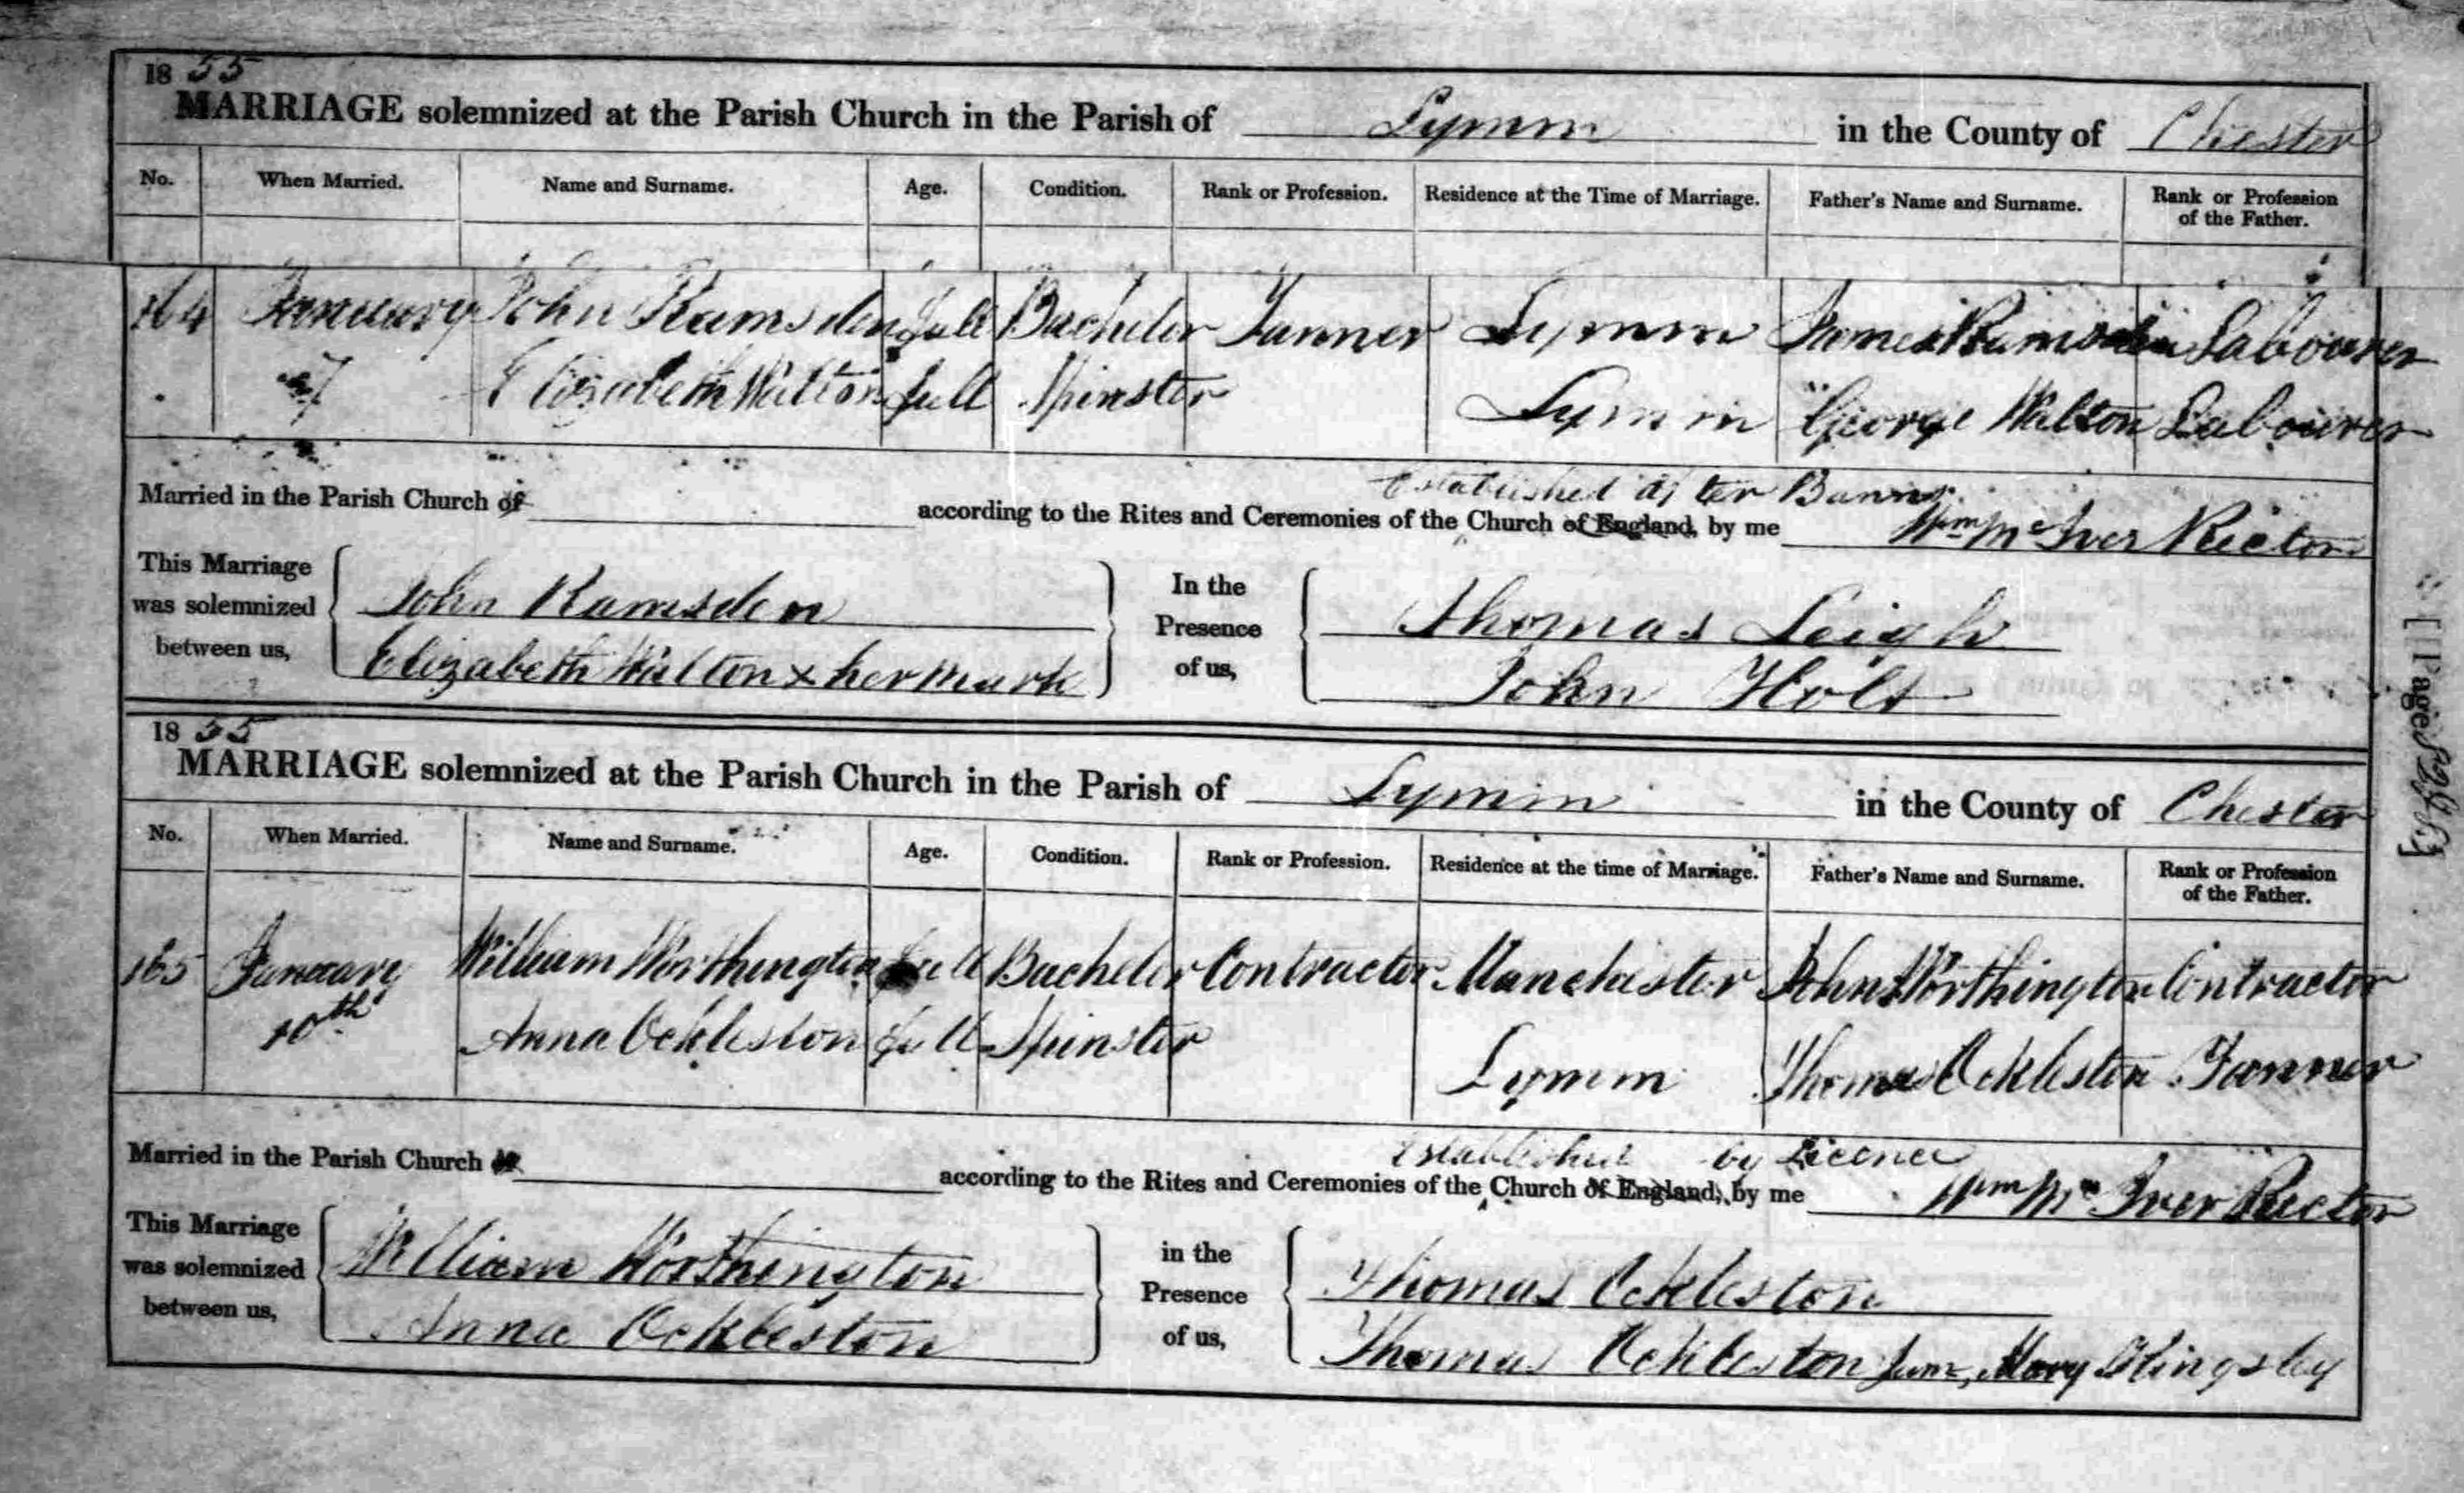 1855
MARRIAGE solemnized at the Parish Church in the Parish of Lymm in the County of Chester
No. When Married. Name and Surname. Age. Condition. Rank or Profession. Residence at the Time of Marriage. Father's Name and Surname. Rank or Profession of the Father.
164 January John Ramsden full Bachelor Tanner Lymm James Ramsden Labourer
7 Elizabeth Walton full Spinster Lymm George Walton Labourer
Established after Banns
Married in the Parish Church of according to the Rites and Ceremonies of the Church of England, by me Wm McIver Rector
This Marriage was solemnized between us, John Ramsden Elizabeth Walton x her mark
In the Presence of us, Thomas Leigh John Holt
1855
MARRIAGE solemnized at the Parish Church in the Parish of Lymm in the County of Chester
No. When Married. Name and Surname. Age. Condition. Rank or Profession. Residence at the time of Marriage. Father's Name and Surname. Rank or Profession of the Father.
165 January William Worthington full Bachelor Contractor Manchester John Worthington Contractor
10th Anna Ockleston full Spinster Lymm Thomas Ockleston Tanner
Established by Licence
Married in the Parish Church according to the Rites and Ceremonies of the Church of England, by me Wm Mc Iver Rector
This Marriage was solemnized between us, William Worthington Anna Ockleston
in the Presence of us, Thomas Ockleston Thomas Ockleston Junr, Mary
Page